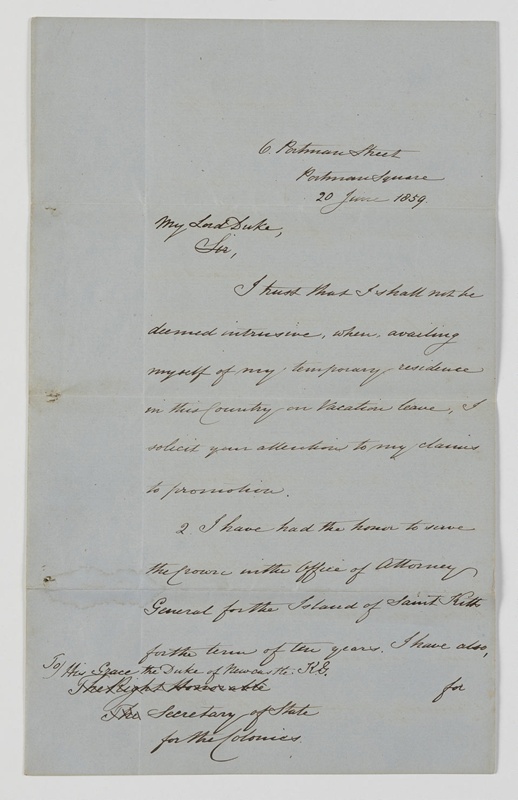 6 Portman Street
Portman Square
20 June 1859.
My Lord Duke,
Sir,
I trust that I shall not be
deemed intrusive, when, availing
myself of my temporary residence
in this Country on Vacation leave, I
solicit your attention to my claims
to promotion.
2 I have had the honor to serve
the Crown in the Office of Attorney
General for the Island of Saint Kitts
for the term of ten years. I have also,
for
To/ His Grace the Duke of Newcastle. K.G.
The Right Honorable
The Secretary of State
for the Colonies.